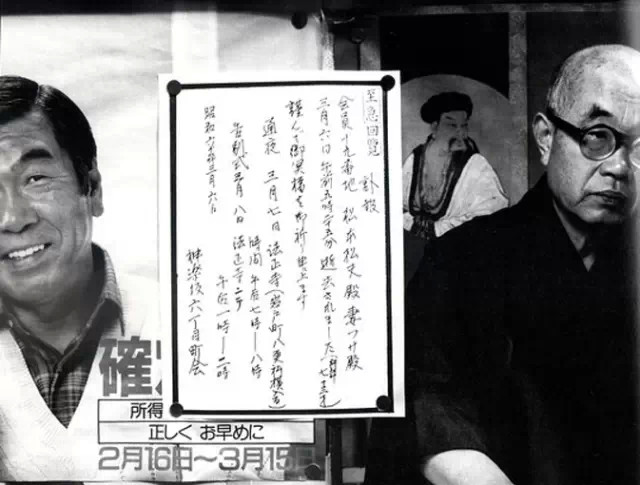 至急回覧 訃報
会員十九番地 松本松夫殿妻つ殿
三月六日午前五時二五分逝去されました(七十三才)
謹んで御冥福を御祈り申上ます
通夜 三月七日 法正寺(岩戸町八 横)
時間 午后七時―八時
告別式三月八日 法正寺ニテ
午后一時―二時
昭和六十年三月六日
神楽坂六丁目町会
確
所得
正しく お早めに
2月16日~3月15日